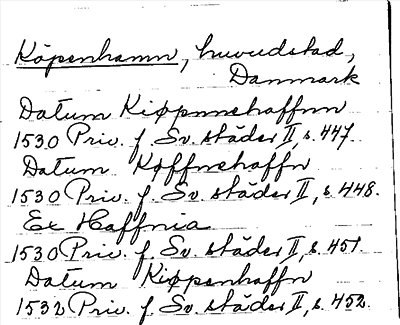 Köpenhamn, huvudstad,
Danmark
Datum Kiøpnnehaffnn
1530 Priv. f. Sv. städer II, s. 447.
Datum Køffnehaffn
1530 Priv. f. Sv. städer II, s. 448.
Ex Haffnia
1530 Priv. f. Sv. städer II, s. 451.
Datum Kiøpenhaffn
1532 Priv. f. Sv. städer II, s. 452.